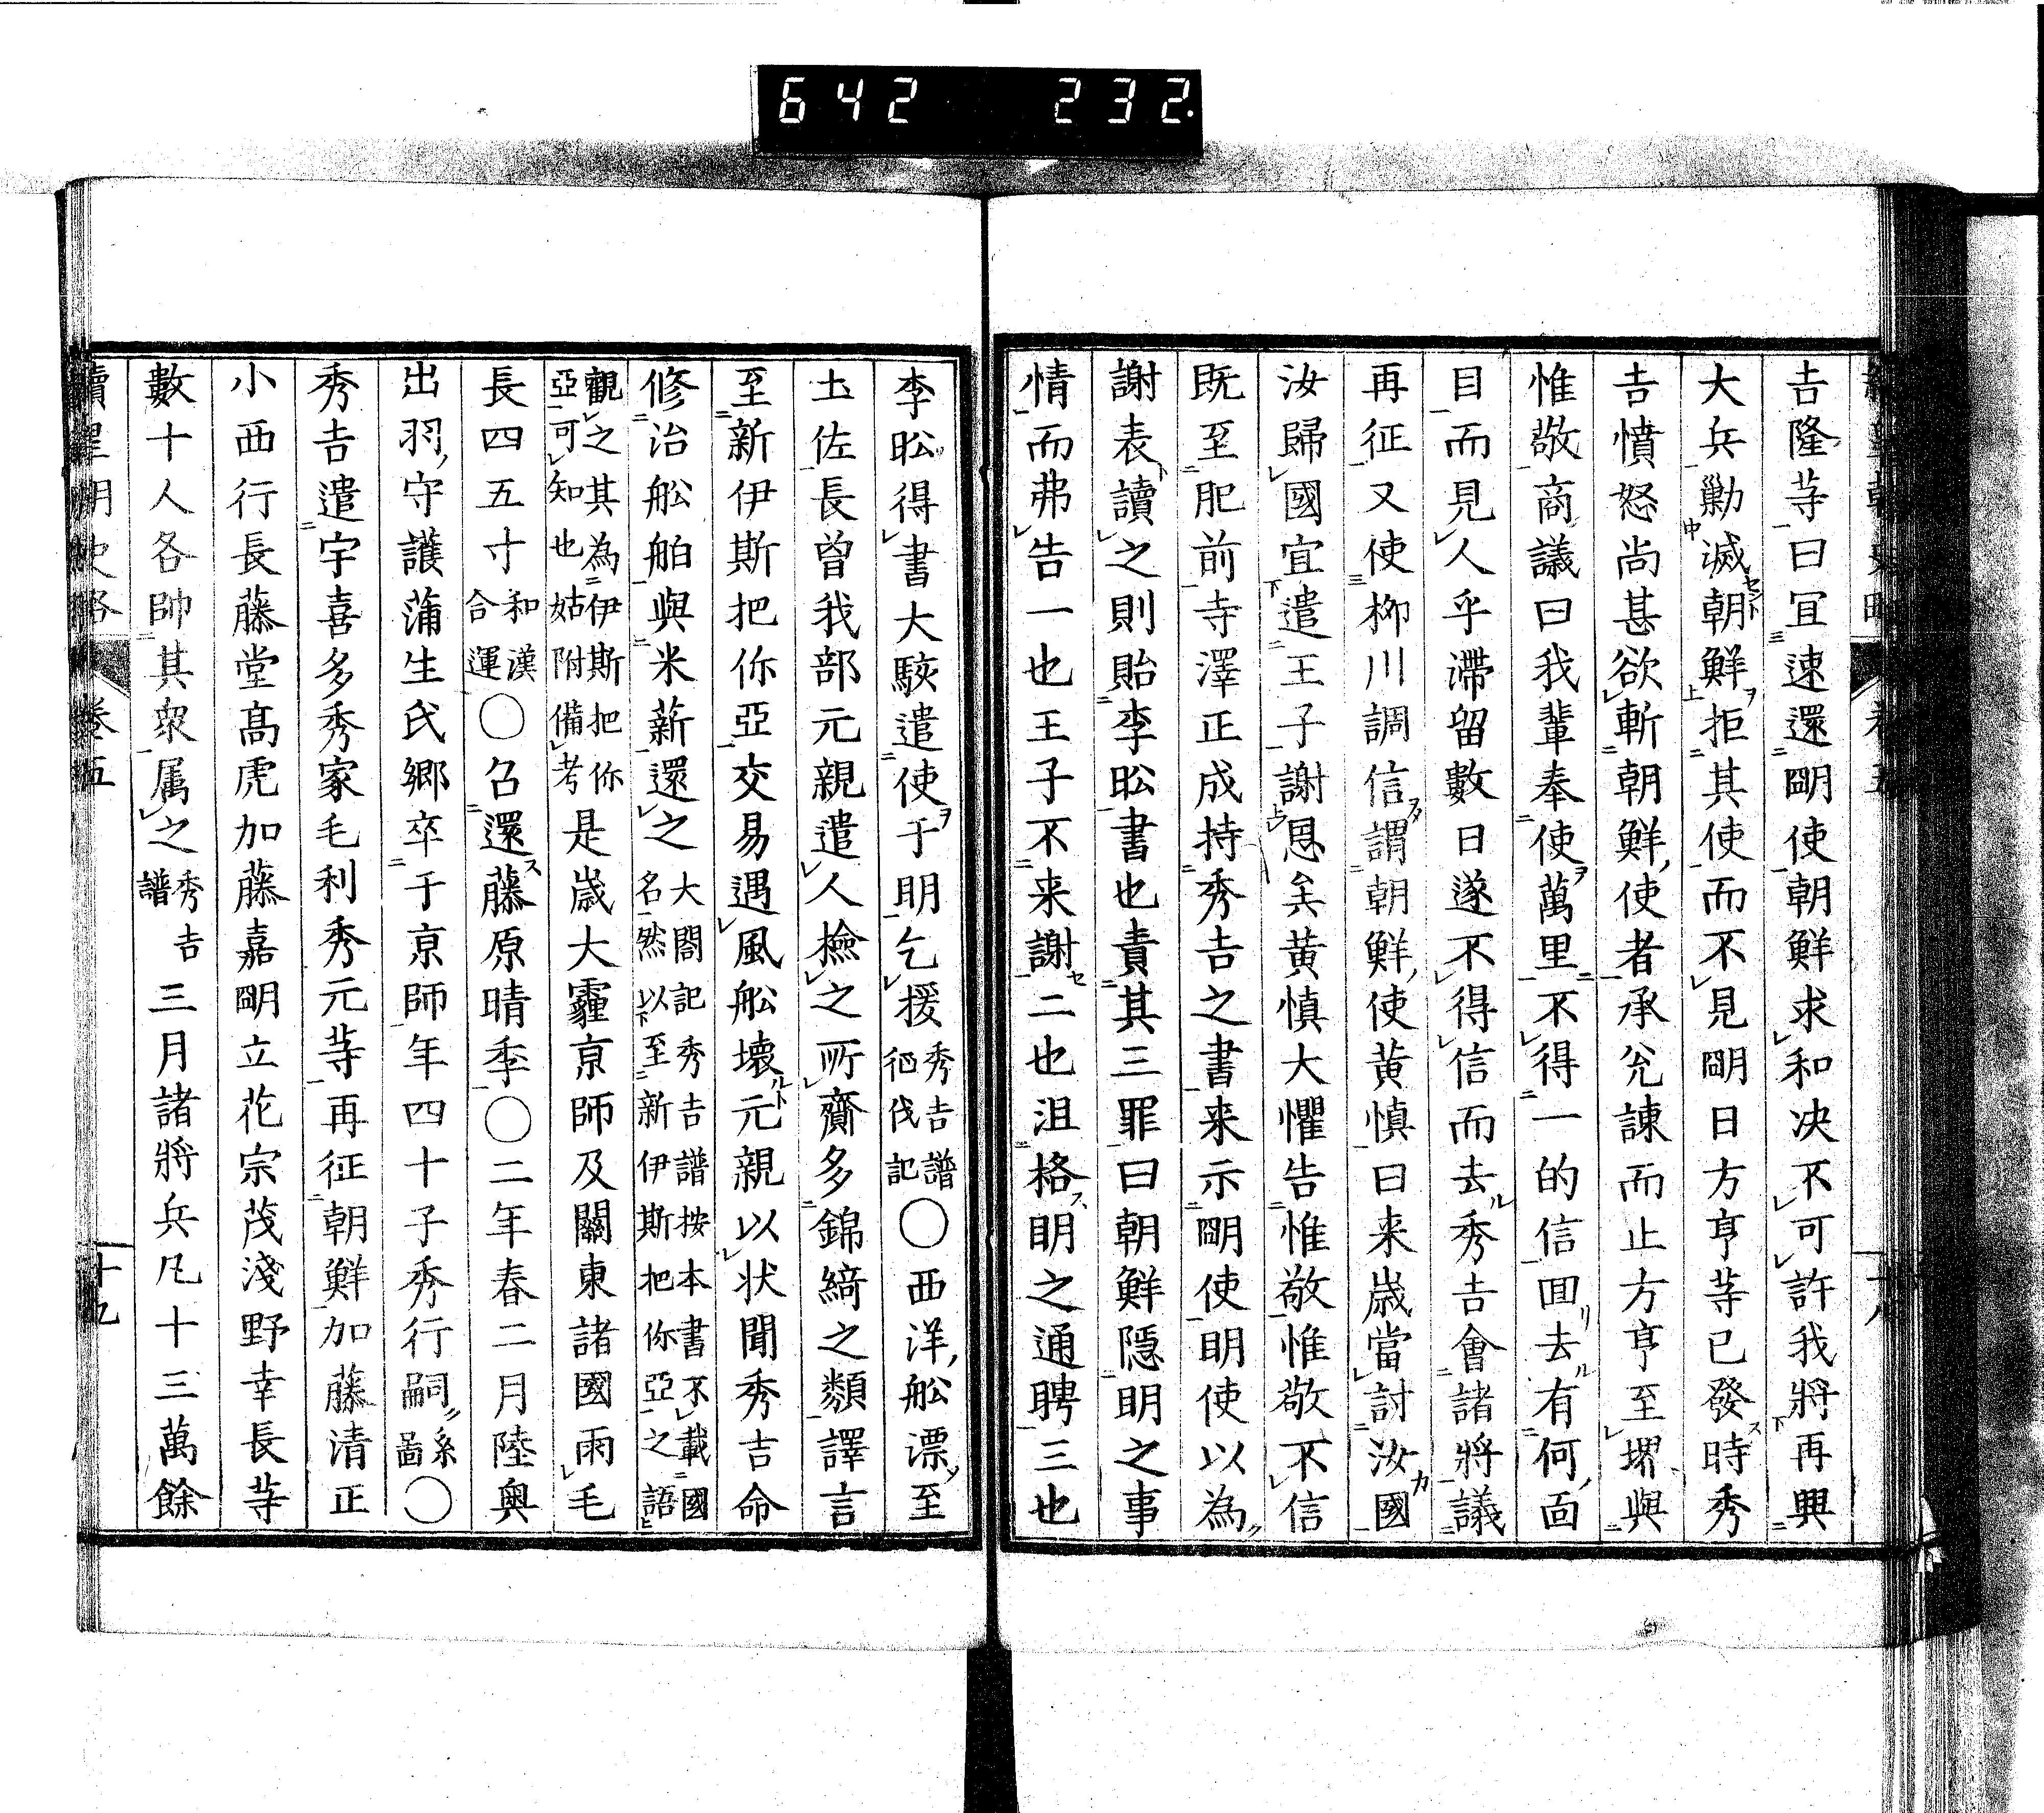 642 232.
吉隆等曰宜速還明使朝鮮求和决不可許我將再興
大兵勦滅朝鮮拒其使而不見明日方亨等已發時秀
吉憤怒尚甚欲斬朝鮮使者承兊諌而止方亨至堺與
惟敬商議曰我輩奉使萬里不得一的信回去有何面
目而見人乎滯留數日遂不得信而去秀吉會諸將議
再征又使柳川調信謂朝鮮使黄慎曰来歳當討汝國
汝歸國宜遣王子謝恩矣黄慎大懼告惟敬惟敬不信
既至肥前寺澤正成持秀吉之書来示明使明使以為
謝表讀之則貽李昖書也責其三罪曰朝鮮隠明之事
情而弗告一也王子不来謝二也沮格明之通聘三也
李昖得書大駭遣使于明乞援秀吉譜征伐記〇西洋舩漂至
土佐長曽我部元親遣人撿之所齎多錦綺之類譯言
至新伊斯把你亞交易遇風舩壊元親以状聞秀吉命
修治舩舶與米薪還之大閤記秀吉譜按本書不載國名然以至新伊斯把你亞之語
觀之其為伊斯把你亞可知也姑附備考是歳大霾京師及關東諸國雨毛
長四五寸和漢合運〇召還藤原晴季〇二年春二月陸奥
出羽守護蒲生氏郷卒于京師年四十子秀行嗣系圖〇
秀吉遣宇喜多秀家毛利秀元等再征朝鮮加藤清正
小西行長藤堂高虎加藤嘉明立花宗茂淺野幸長等
數十人各帥其衆属之秀吉譜三月諸將兵凡十三萬餘
續皇朝史略 卷五 十九